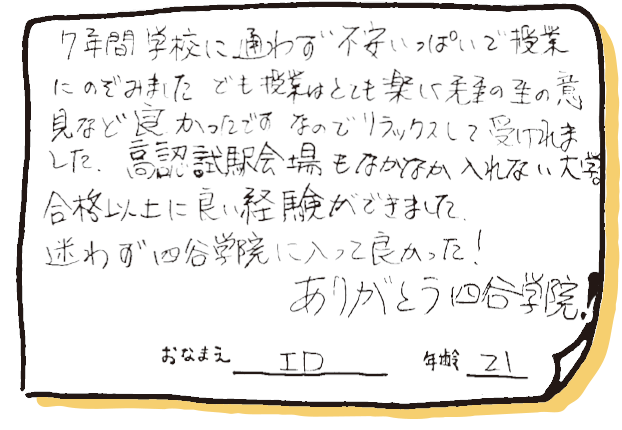 7年間学校に通わず不安いっぱいで授業
にのぞみました でも授業はとても楽しく 先生の生の意
見など良かったです なのでリラックスして受けれま
した. 高認試験会場もなかなか入れない大学
合格以上に良い経験ができました.
迷わず四谷学院に入って良かった!
ありがとう四谷学院!
おなまえ ID 年齢 21